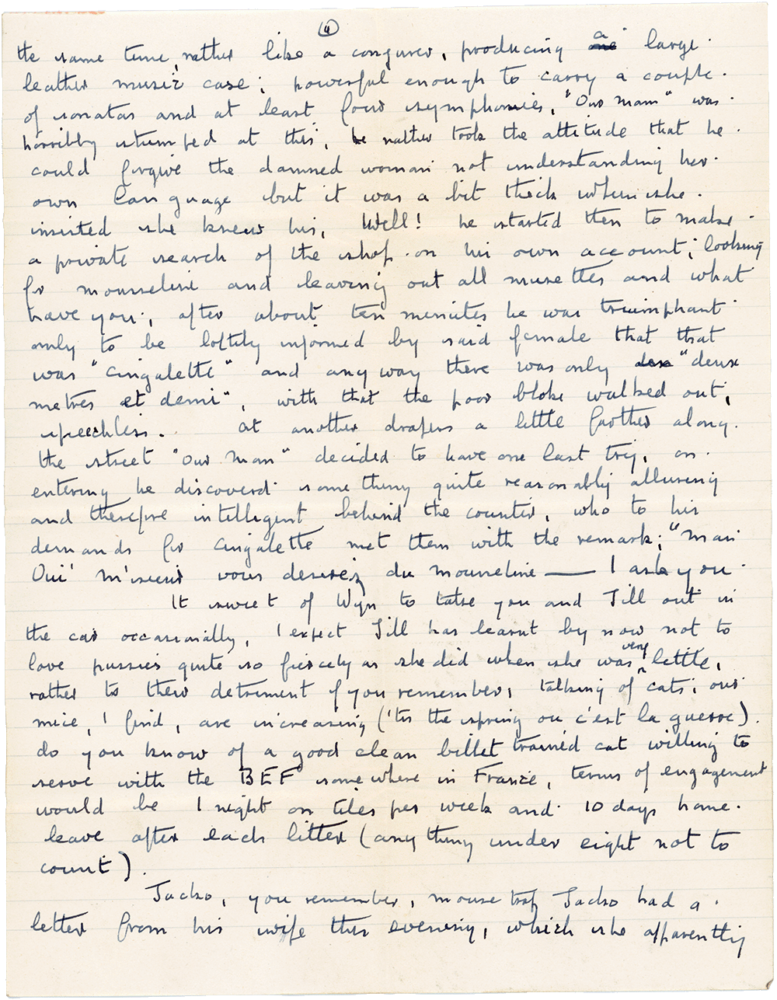 (4)
the same time, rather like a conjuror, producing a large
leather music case; powerful enough to carry a couple
of sonatas and at least four symphonies, "Our man" was
horribly stumped at this, he rather took the attitude that he
could forgive the damned woman not understanding her
own language but it was a bit thick when she
insisted she knew his, Well! he started then to make
a private search of the shop on his own account; looking
for mousseline and leaving out all musettes and what
have you; after about ten minutes he was triumphant
only to be loftily informed by said female that that
was "Cingalette" and any way there was only "deux
metres et demi", with that the poor bloke walked out;
speechless.. at another drapers a little farther along
the street "our man" decided to have one last try, on
entering he discovered something quite reasonably alluring
and therefore intelligent behind the counter, who to his
demands for cingalette met them with the remark; "Mais
Oui' m'sieur vous desirez du mousseline — I ask you
It sweet of Wyn to take you and Jill out in
the car occasionally, I expect Jill has learnt by now not to
love pussies quite so fiercely as she did when she was very little,
rather to their detriment if you remember, talking of cats; our
mice, I find, are increasing ('tis the spring ou c'est la guerre).
do you know of a good clean billet trained cat willing to
serve with the BEF somewhere in France, terms of engagement
would be 1 night on tiles per week and 10 days home
leave after each litter (any thing under eight not to
count).
Jacko, you remember, mouse trap Jacko had a
letter from his wife this evening, which she apparently